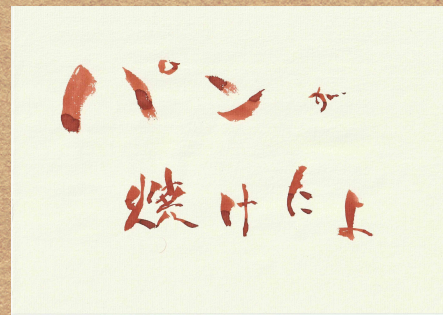 パンが
焼けたよ